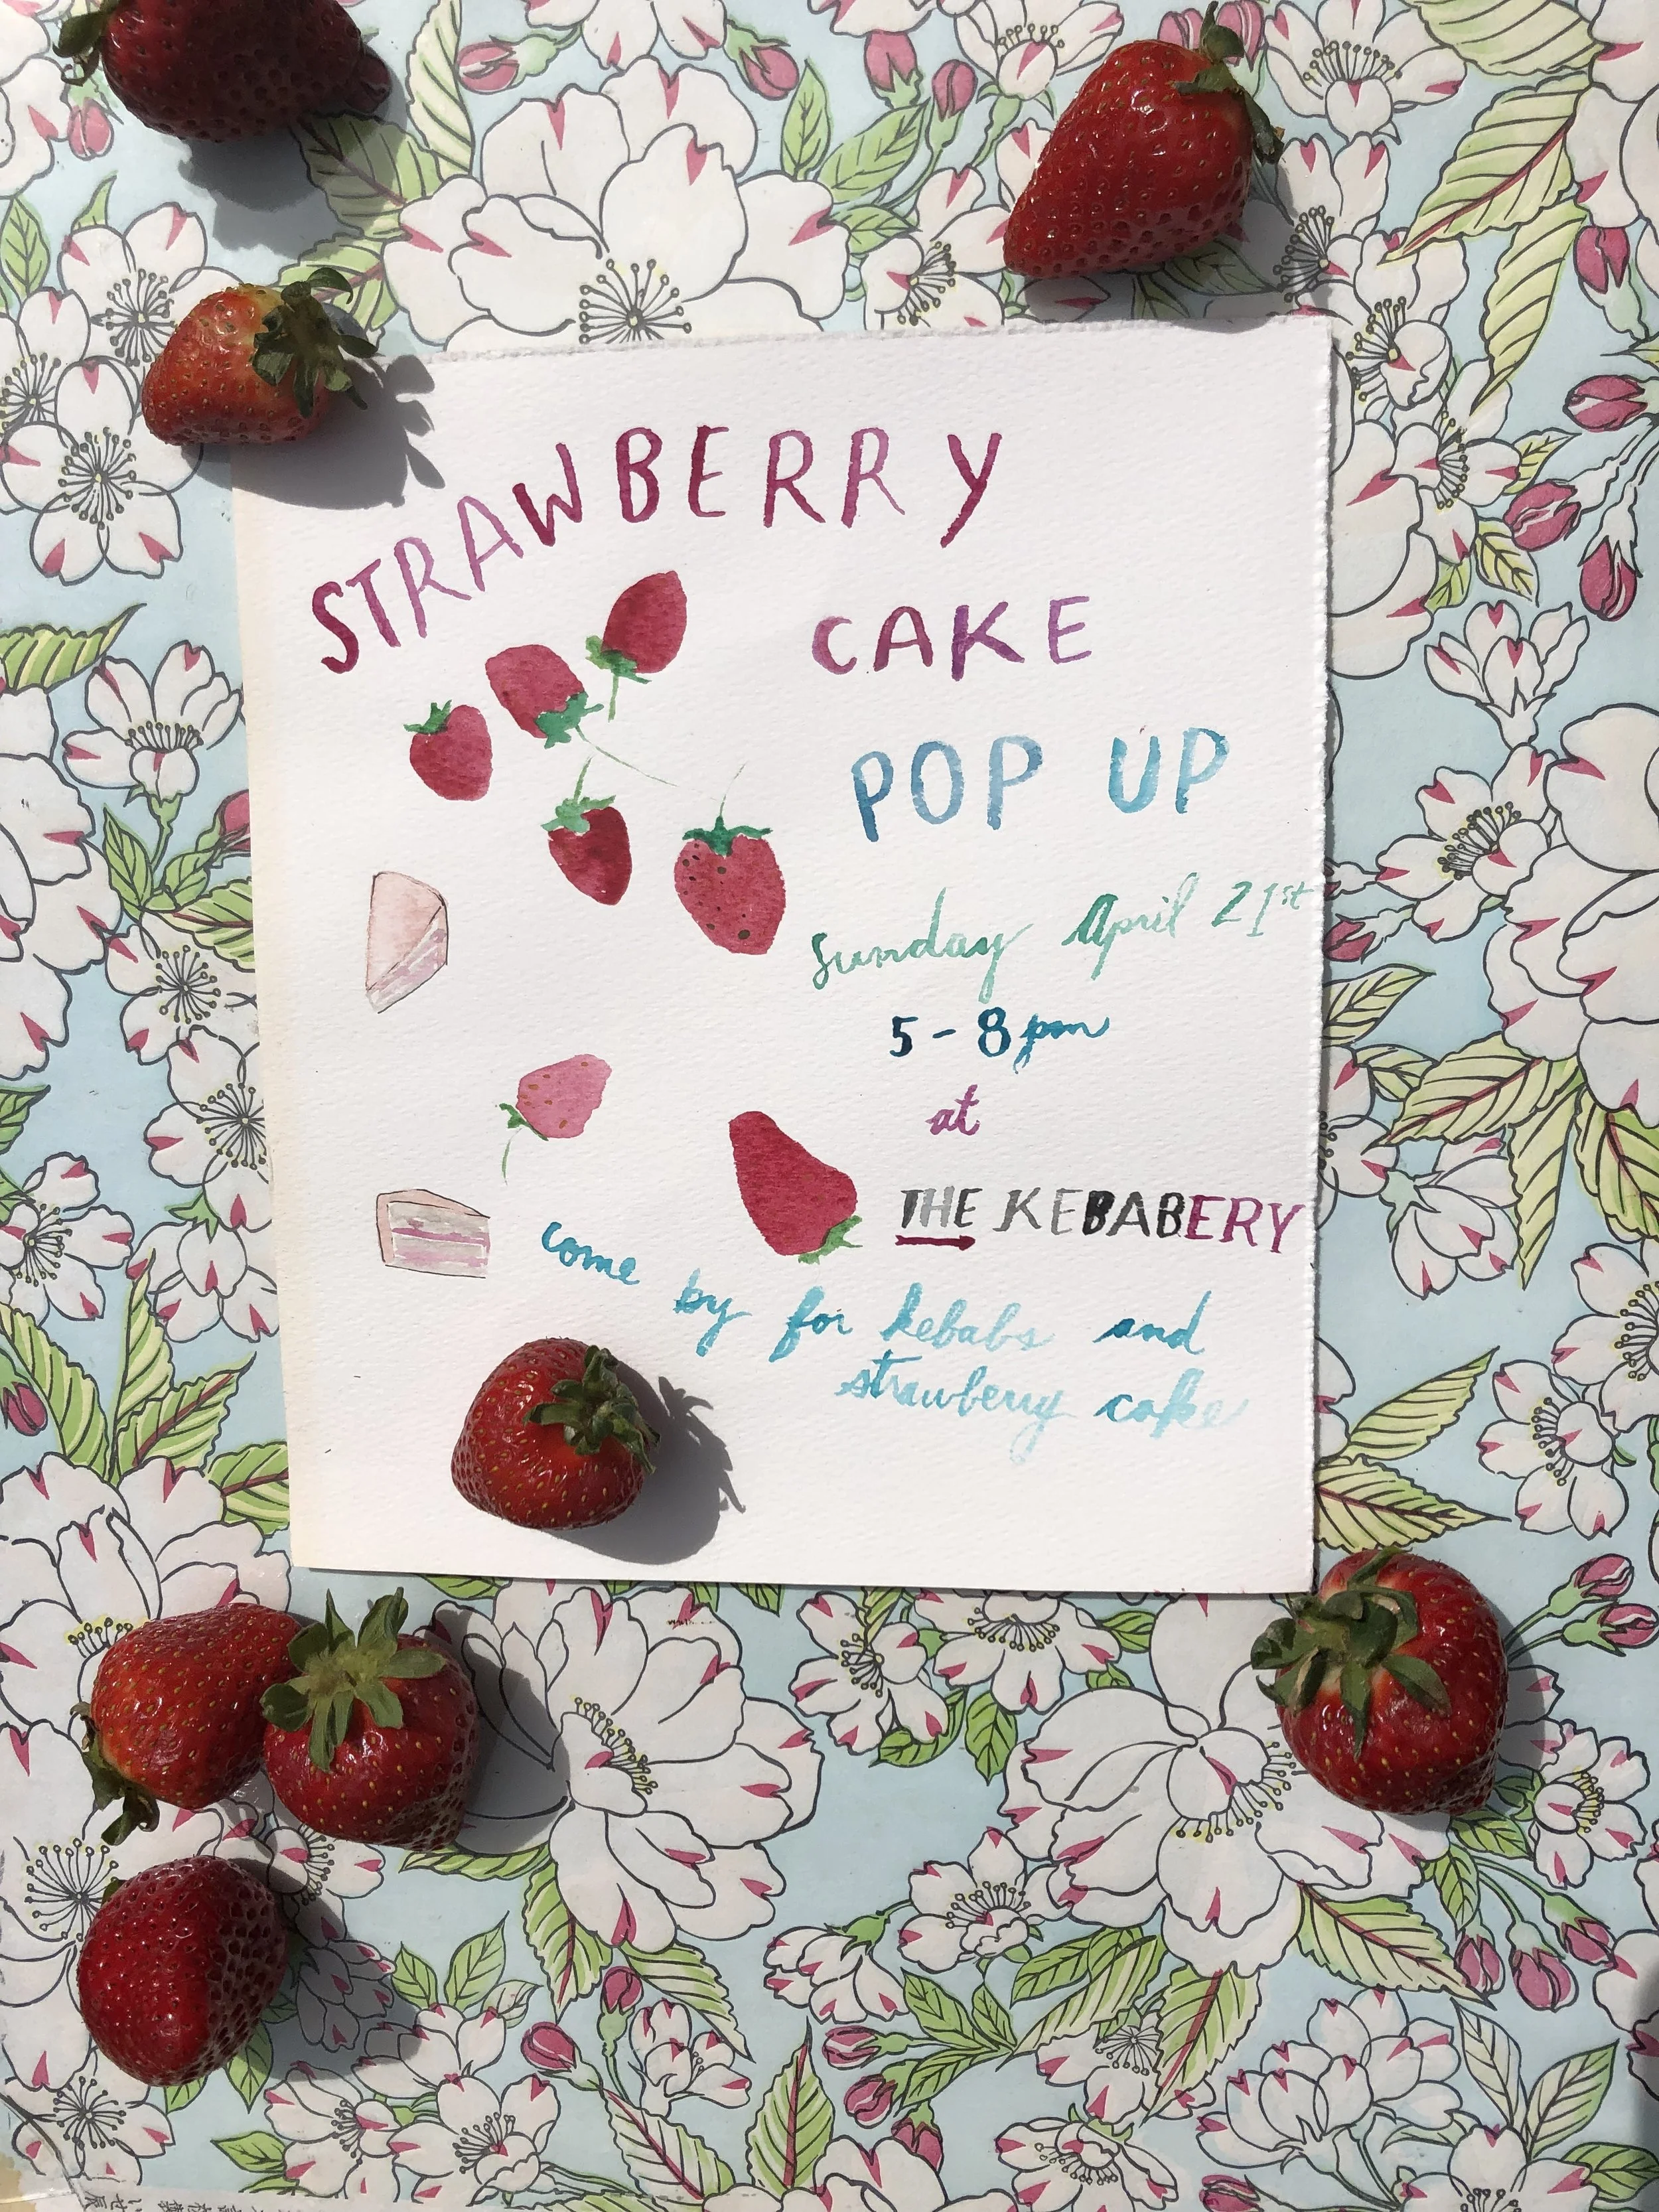 STRAWBERRY
CAKE
POP UP
Sunday April 21st
5-8pm
at
THE KEBABERY
come by for kebabs and
strawberry cake